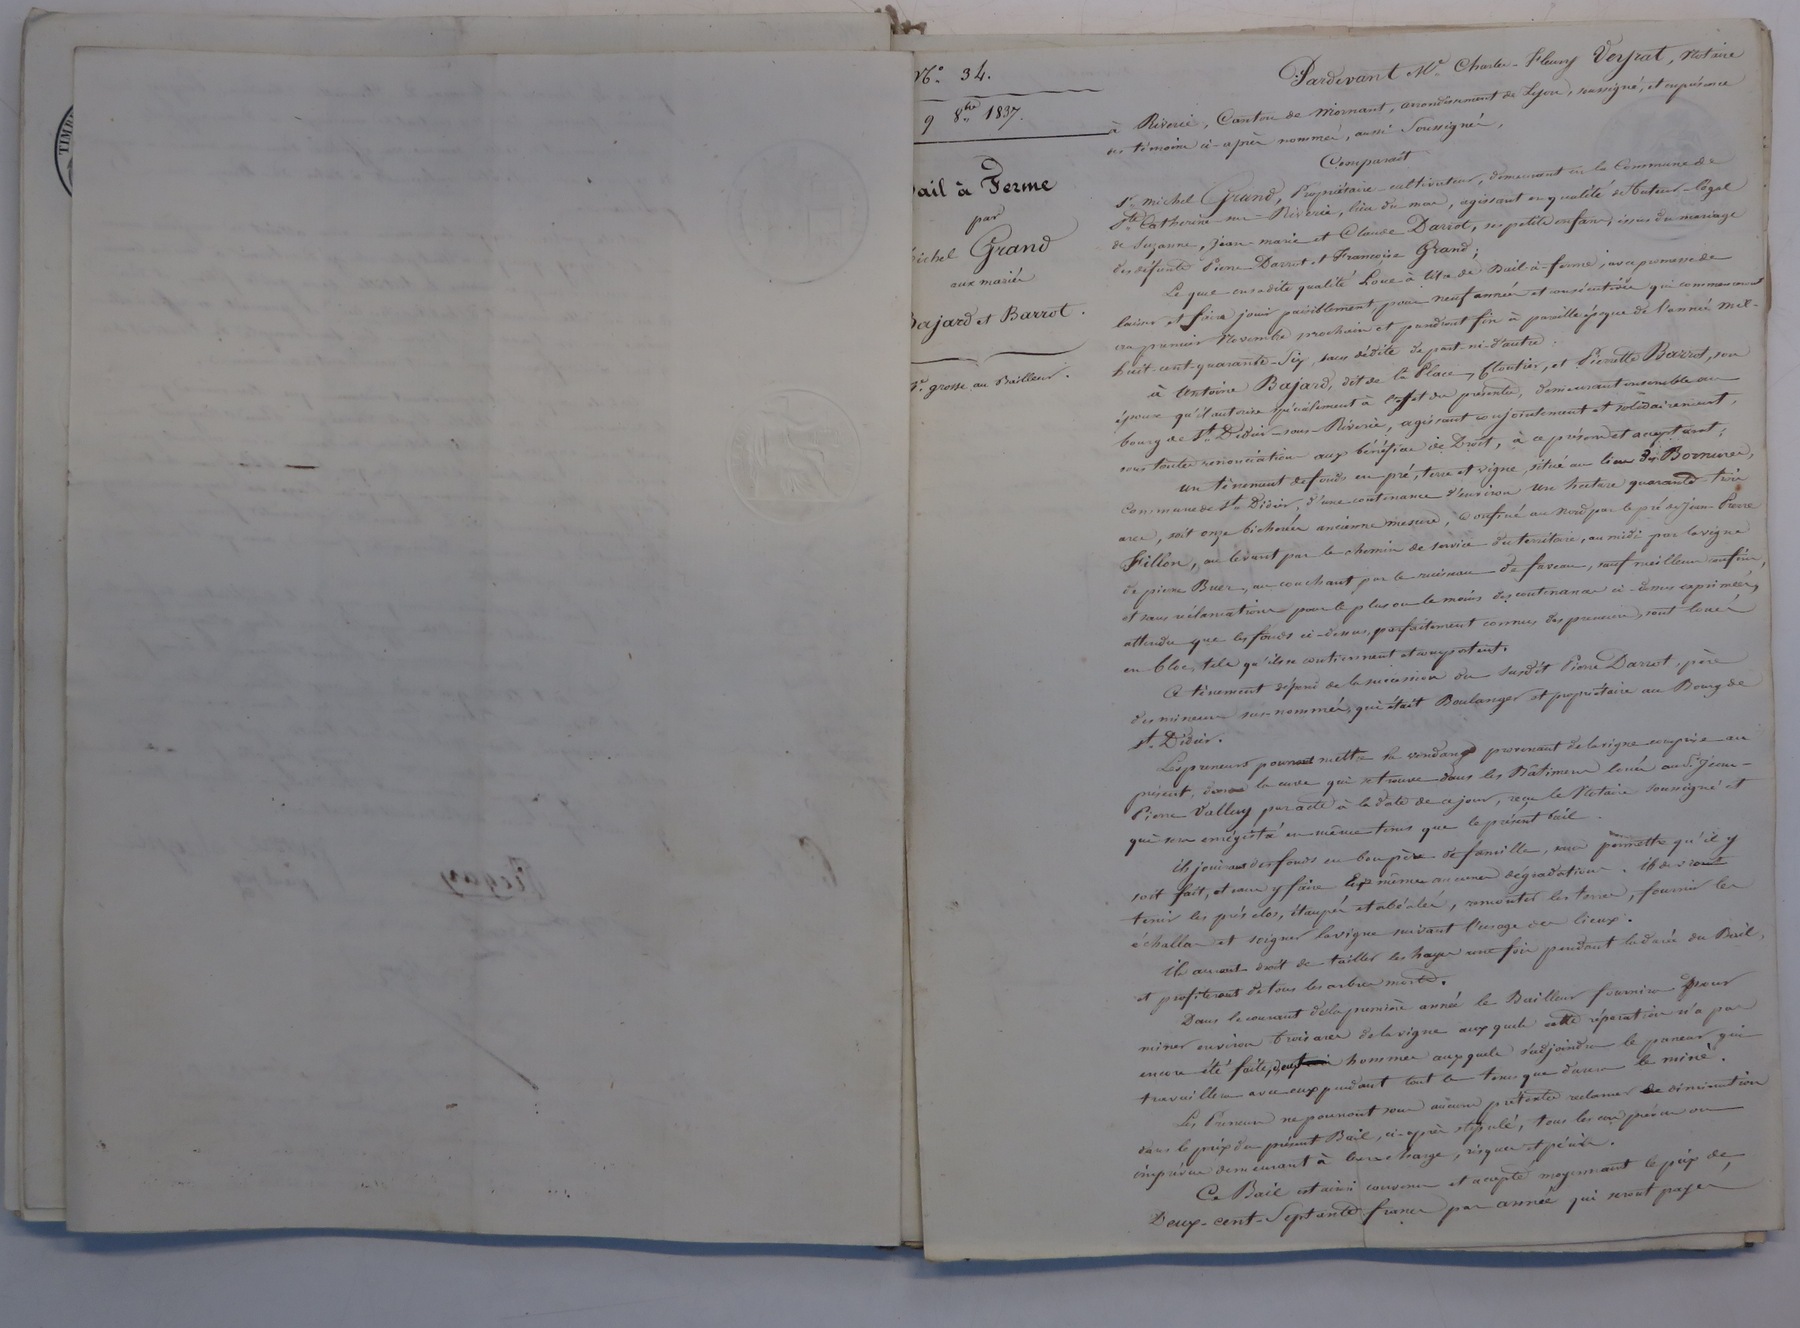 TIMBR
N.° 34.
9 8bre 1837.
ail à Ferme
par
ichel Grand
aux mariés
Bajard et Barrot.
1re grosse au Bailleur.
Pardevant Me Charles-Fleury Veyrat, Notaire
à Riverie, Canton de Mornant, arrondissement de Lyon, soussigné, et en présence
des témoins ci-après nommés, aussi soussignés,
Comparait
Sr. Michel Grand, Propriétaire-cultivateur, demeurant en la Commune de
Ste Catherine-sur-Riverie, lieu du mas, agissant en qualité de tuteur-légal
de Suzanne, Jean-marie et Claude Darrot, ses petits enfans, issus du mariage
des défunts Pierre Darrot et Françoise Grand;
Le quel en sadite qualité Loue à titre de Bail-à-ferme, avec promesse de
laisser et faire jouir paisiblement pour neuf années et consécutives qui commenceront
au premier Novembre prochain et prendront fin à pareille époque de l'année mil-
huit-cent-quarante-six, sans dédite de part-ni-d'autre.
à Antoine Bajard, dit de la Place, Cloutier, et Pierrette Barrot, son
épouse qu'il autorise spécialement à l'effet des présentes, demeurant ensemble au
bourg de St. Didier-sous-Riverie, agissant conjointement et solidairement,
sous toutes renonciations aux bénéfices de Droit, à ce présens et acceptant;
un tènement de fonds en pré, terre et vigne, situé au lieu des Bornures,
commune de St. Didier, d'une contenance d'environ un hectare quarante-trois
ares, soit onze bicherées ancienne mesure, Confiné au Nord par le pré de Jean-Pierre
Fillon, au levant par le chemin de service du territoire, au midi par la vigne
de pierre Buer, au couchant par le ruisseau de faveau, sauf meilleurs confins,
et sans réclamations pour le plus ou le moins des contenances ci-dessus exprimées,
attendu que les fonds ci-dessus, parfaitement connus des preneurs, sont loués
en bloc, tels qu'ils se contiennent et comportent.
Ce tènement dépend de la succession du susdit Pierre Darrot, père
des mineurs sus-nommés, qui était Boulanger et propriétaire au Bourg de
St. Didier.
Les preneurs pourront mettre la vendange provenant de la vigne comprise au
présent, dans la cuve qui se trouve dans les Bâtimens loués au Sr. Jean-
Pierre Vallay par acte à la date de ce jour, reçu le Notaire soussigné et
qui sera enregistré en même tems que le présent bail.
ils jouiront des fonds en bons père de famille, sans permettre qu'il y
soit fait, et sans y faire Eux-mêmes aucunes dégradations. ils devront
tenir les prés clos, étaupés et abéalés, remonter les terres, fournir les
échallas et soigner la vigne suivant l'usage des lieux.
ils auront droit de tailler les hayes une fois pendant la durée du Bail,
et profiteront de tous les arbres morts.
Dans le courant de la première année le Bailleur fournira Pour
miner environ trois ares de la vigne aux quels cette réparation n'a pas
encore été faite, hommes auxquels s'adjoindra le preneur qui
travaillera avec eux pendant tout le tems que durera le miné.
Les Preneurs ne pourront sous aucuns prétextes réclamer de diminution
dans le prix du présent Bail, ci-après stipulé, tous les cas prévus ou
imprévus demeurant à leurs charge, risques et périls.
Ce Bail est ainsi convenu et accepté moyennant le prix de
Deux-cent-Septante francs par année qui seront payés